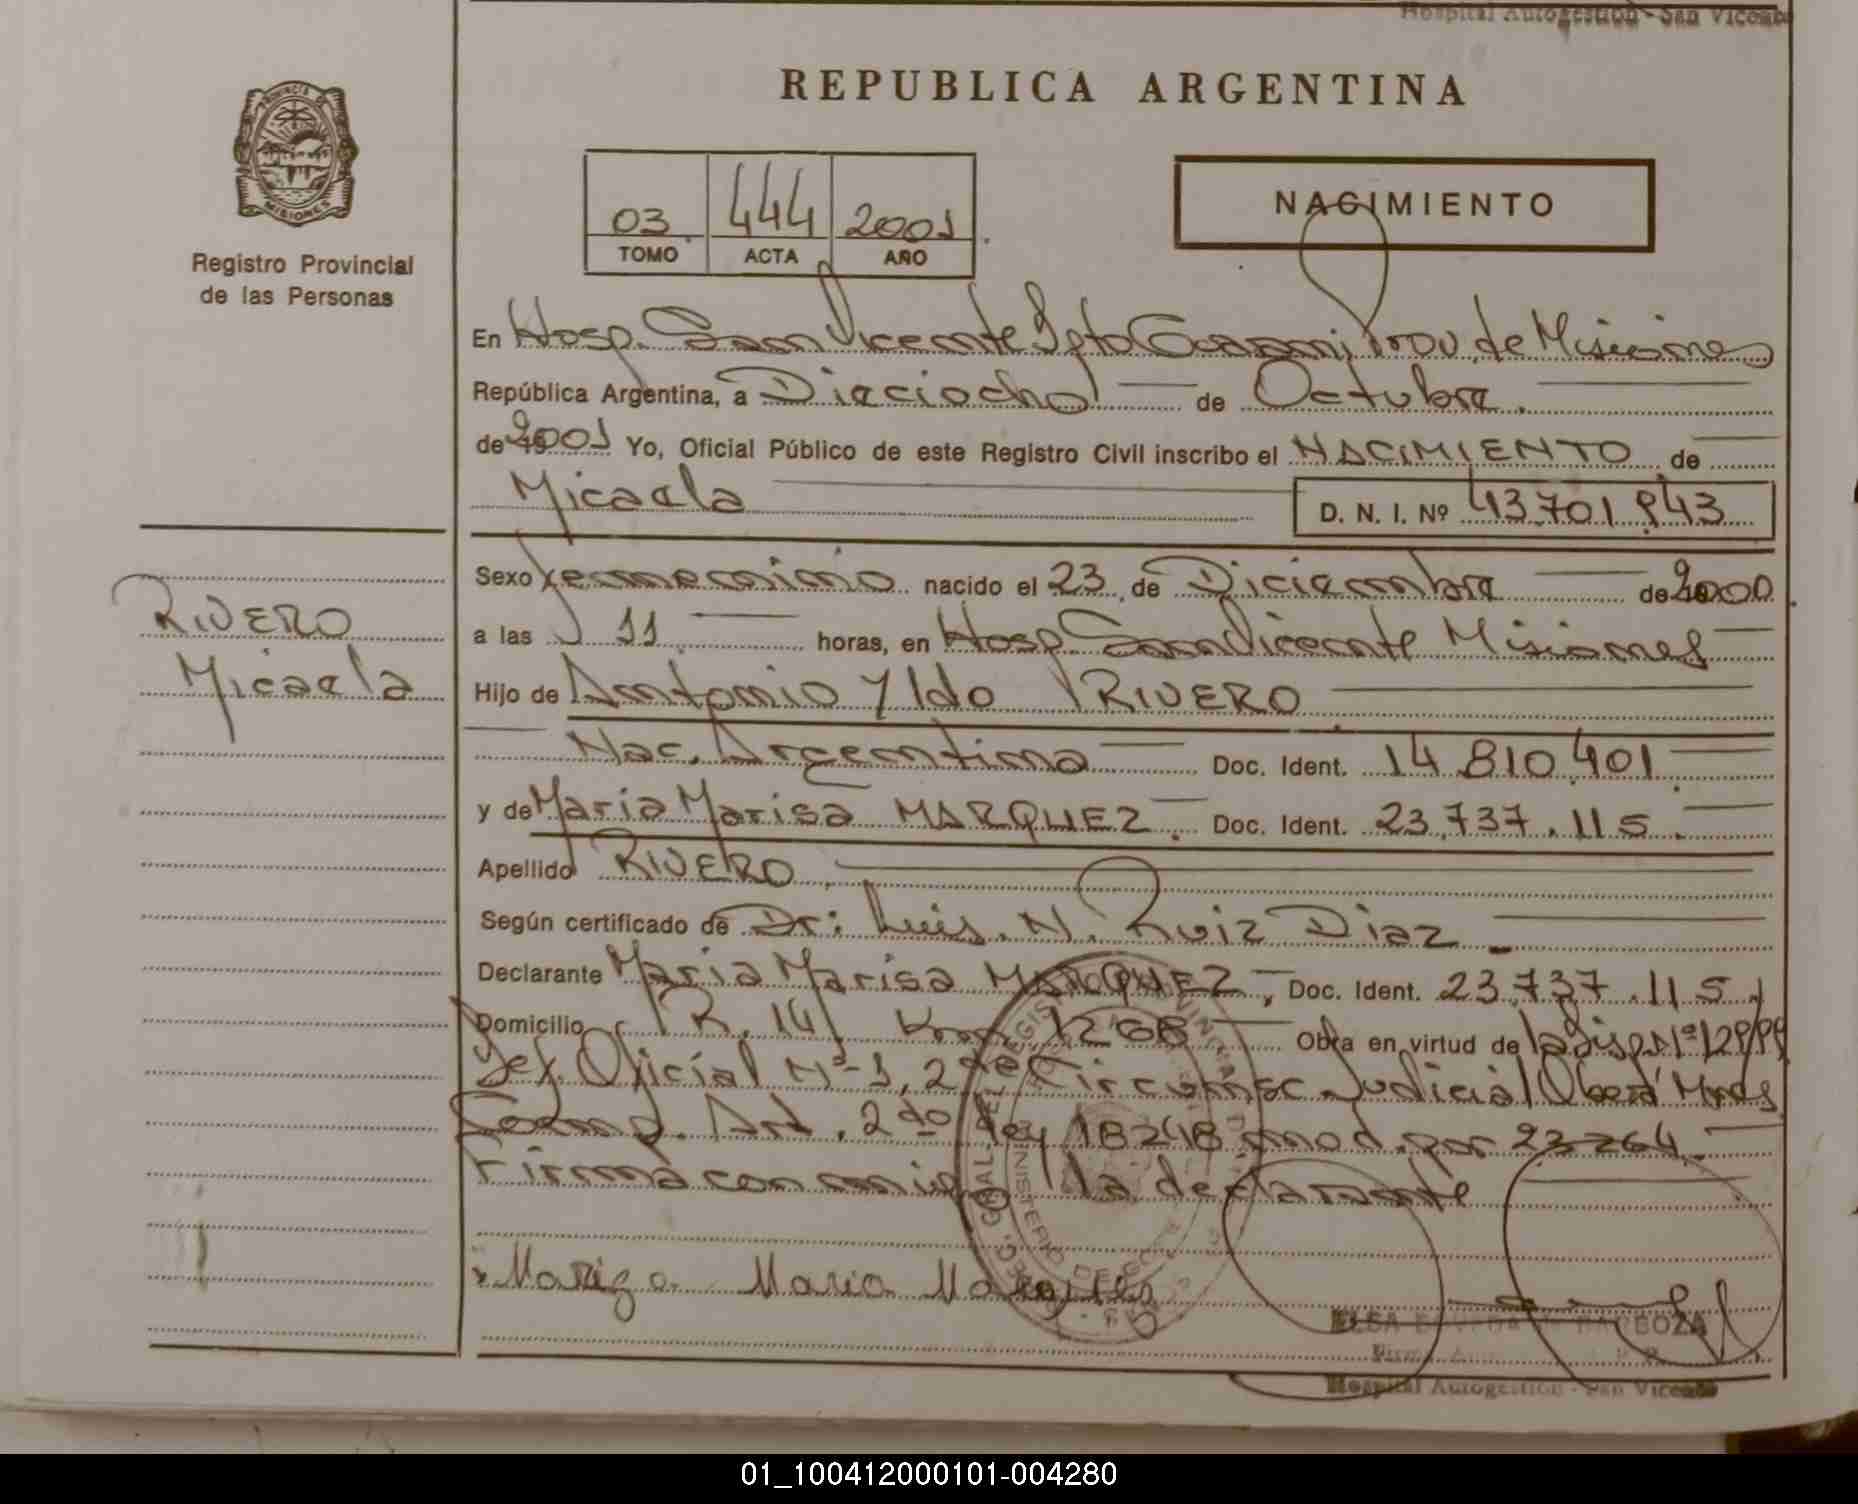 Hospital Autogestión - San Vicente
REPUBLICA ARGENTINA
PROVINCIA DE
MISIONES
Registro Provincial
de las Personas
03 444 2001
TOMO ACTA AÑO
NACIMIENTO
En Hosp. San Vicente Dpto Guarani, Prov. de Misiones
República Argentina, a Dieciocho de Octubre.
de 2001 Yo, Oficial Público de este Registro Civil inscribo el NACIMIENTO de
Micaela D. N. I. Nº 43.701.943
Sexo femenino nacido el 23 de Diciembre de 2000
a las 11 horas, en Hosp. San Vicente Misiones
RIVERO
Micaela
Hijo de Antonio Yldo RIVERO
Nac. Argentina Doc. Ident. 14.810.401
y de Maria Marisa MARQUEZ. Doc. Ident. 23.737.115.
Apellido RIVERO
Según certificado de Dr: Luis. N. Ruiz Diaz
Declarante Maria Marisa MARQUEZ, Doc. Ident. 23.737.115
Domicilio R. 14 Km 1268 Obra en virtud de la Disp. Nº
Def. Oficial Nº 1, 2da Circunsc Judicial Oberá Mnes
Comp. Art. 2do ley 18248 mod. por 23264.
Firma conmigo la declarante
Mariza Maria Marques
ELSA BARBOZA
Hospital Autogestión - San Vicente
01_100412000101-004280